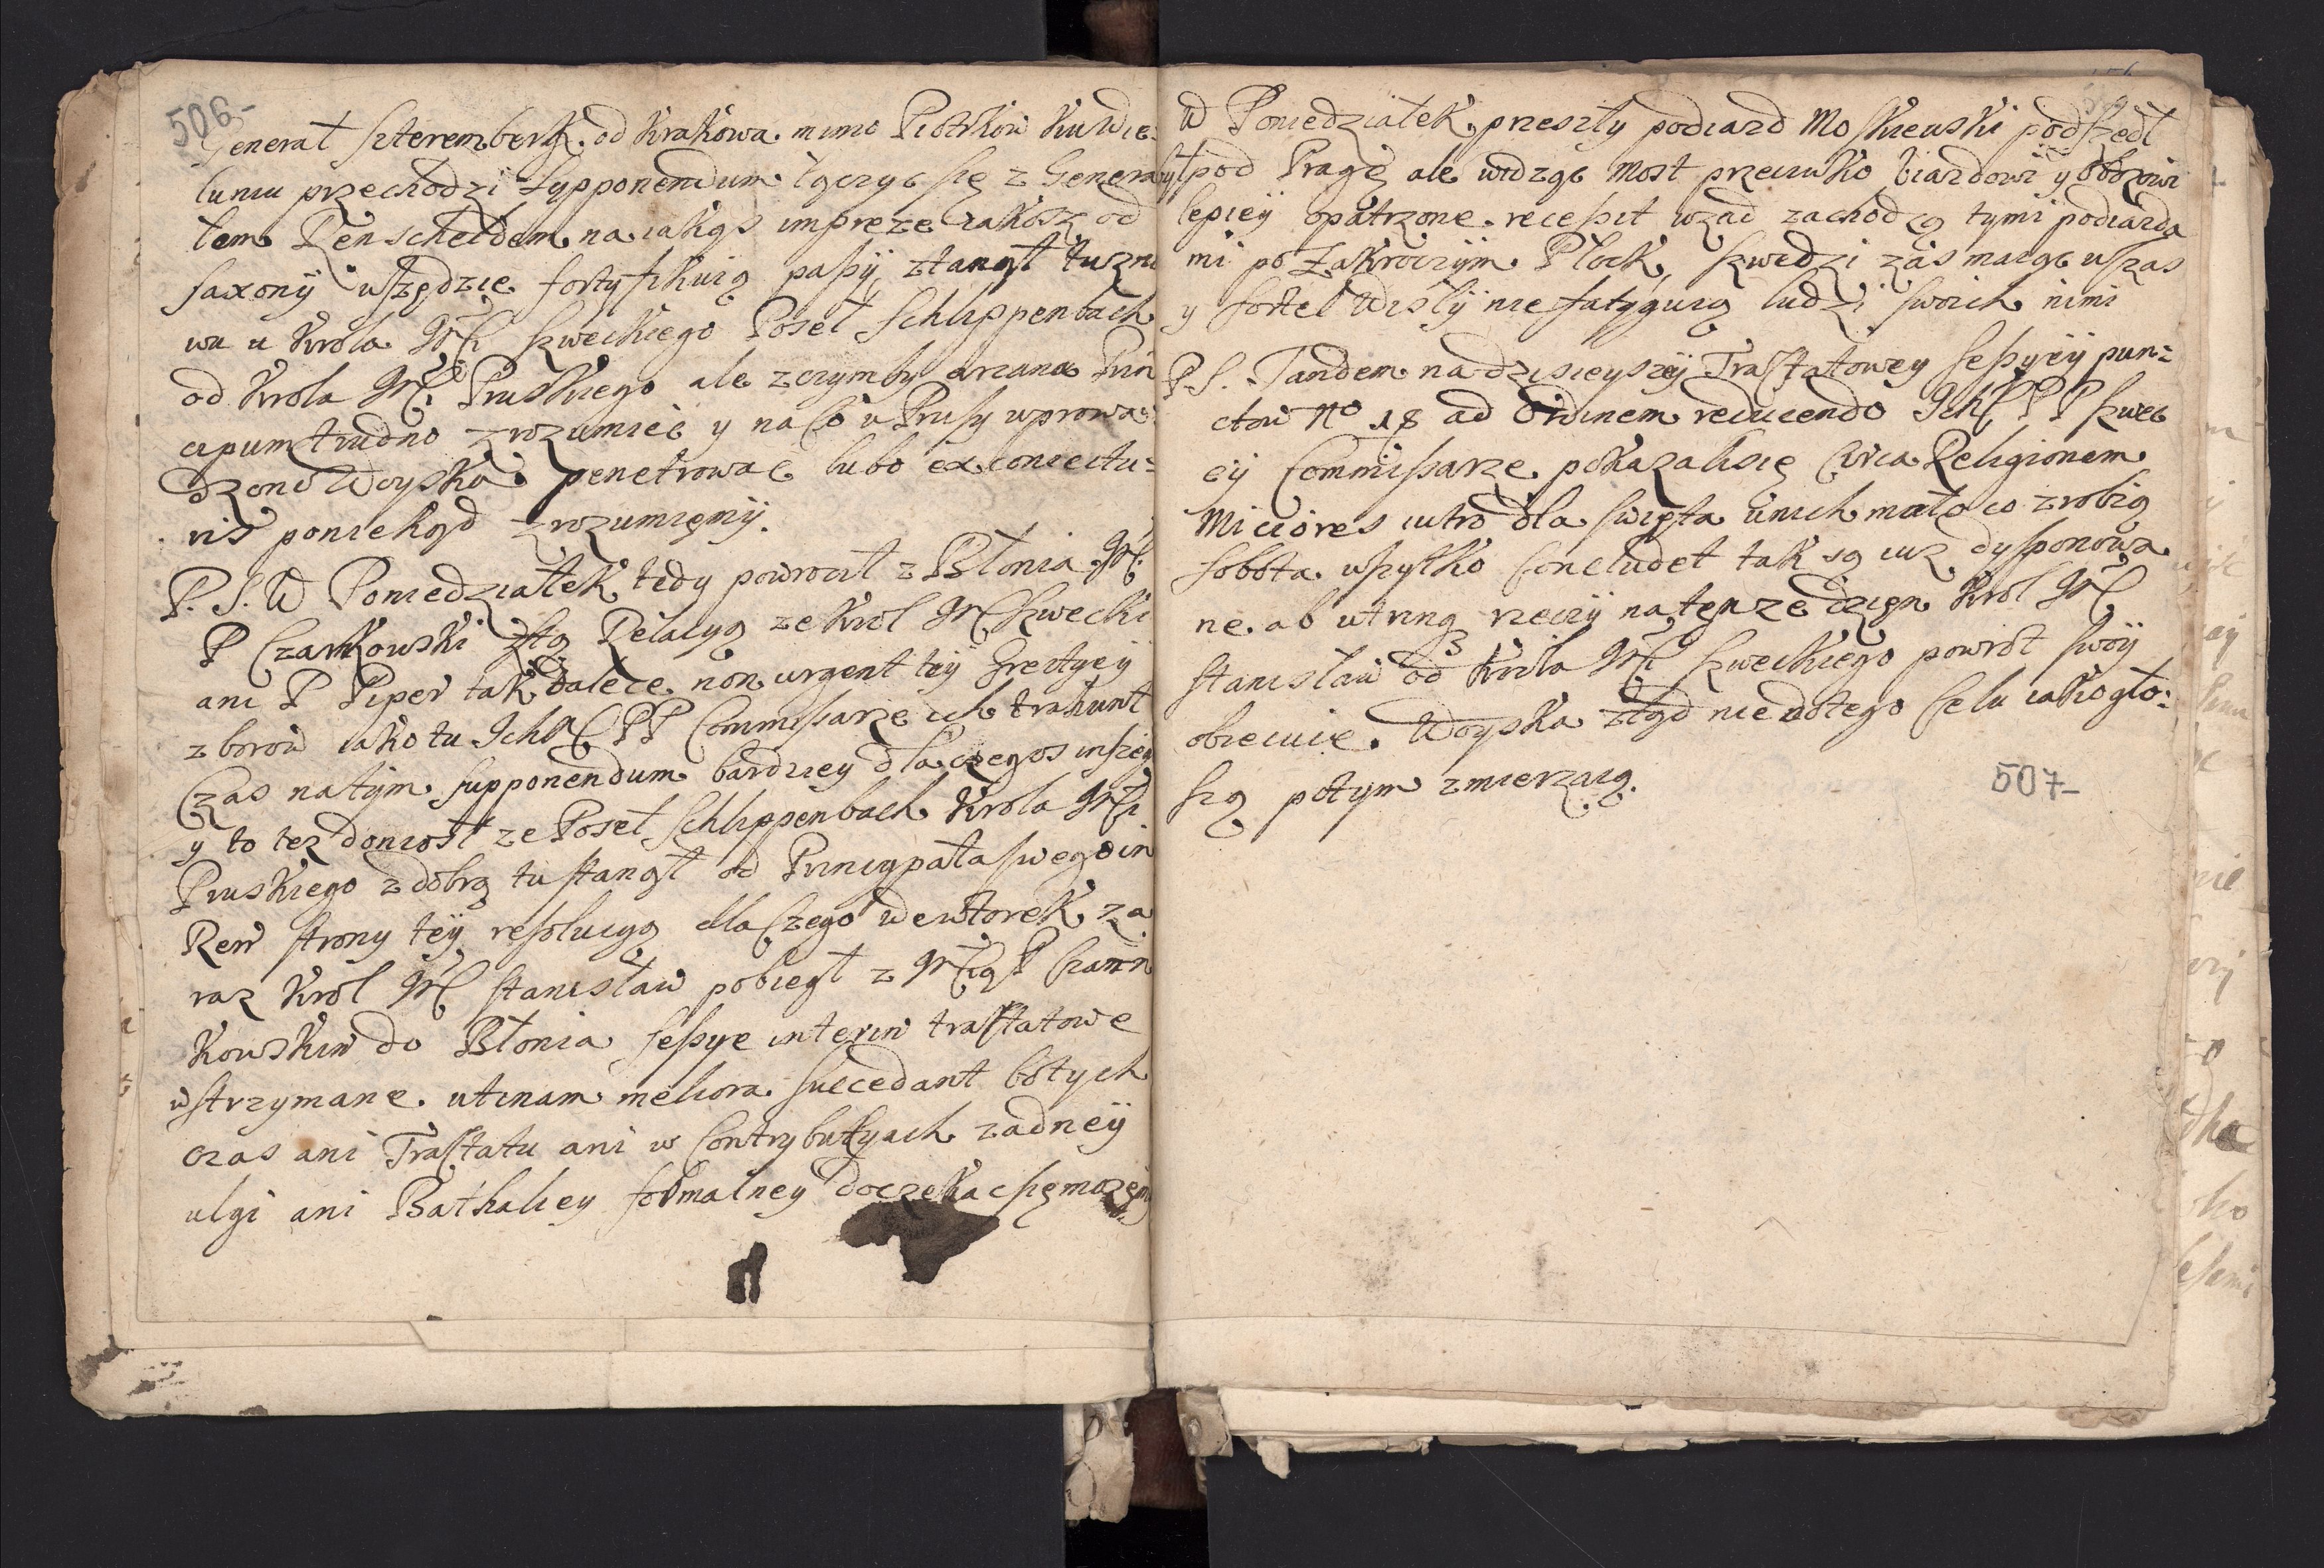 506-
Generał Szteremberk od Krakowa mimo Piotrkow ku Wie-
luniu przechodzi supponendum łączyć się z Genera
łem Renscheldem na iakąs impreze iakosz od
Saxony wszędzie fortyfikuią passy ztanął tuszni
wu u Krola JMCi Szweckiego Poseł Schlippenbach
od Krola JMCi Pruskiego ale z czym by arcana Prin
cipum trudno zrozumieć y na co w Prusy wprowa-
dzono Woyska penetrować lubo ex coniectu-
ris poniekąd zrozumięmy.
P. S. W Poniedziałek tedy powrocił z Błonia JMC
P Czarkowski z tą Relacyą ze Krol JMC Szwecki
ani P Piper tak dalece non urgent tey Erectyey
zborow iako tu Ich MC PP Commissarze ich trahunt
Czas na tym supponendum bardziey dla czegos inszeg
y to tez doniosł ze Poseł Schlippenbach Krola JMCi
Pruskiego z dobrą tu stanął od Pryncypała swego in
Rem strony tey resolucyą dla Czego we wtorek za
raz Krol JMC Stanisław pobiegł z JMCią P Czarn
kowskim do Błonia sessye interim tractatowe
wstrzymane. utinam meliora succedant bo tych
czas ani Tractatu ani w Contrybucyach zadney
ulgi ani Bathaliey formalney doczekac się mozęmy
W Poniedziałek przeszły podiazd Moskiewski podszedł
był pod Pragę ale widząc Most przeciwko Uiazdowi y Obozowi
lepiey opatrzone recessit wzad zachodzą tymi podiazda
mi po Zakroczym Płock, Szwedzi zas maiąc wczas
y fortel Wisły nie fatyguią ludzi swoich nimi
P. S. Tandem na dzisieyszey Tractatowey sessyey pun-
ctow No 18 ad Ordinem reducendo Ich MC PP Szwec
cy Commissarze pokazali się Circa Religionem
Mitiores iutro dla swięta u nich mało co zrobią
Sobota wszytko Concludet tak są iuz dysponowa
ne ab utrinq rzeczy na tęn ze dzięn Krol JMC
Stanisław od Krola JMC Szweckiego powrot swoy
obiecuie. Woyska ztąd nie do tego Celu iako gło-
szą potym zmierzaią.
507-